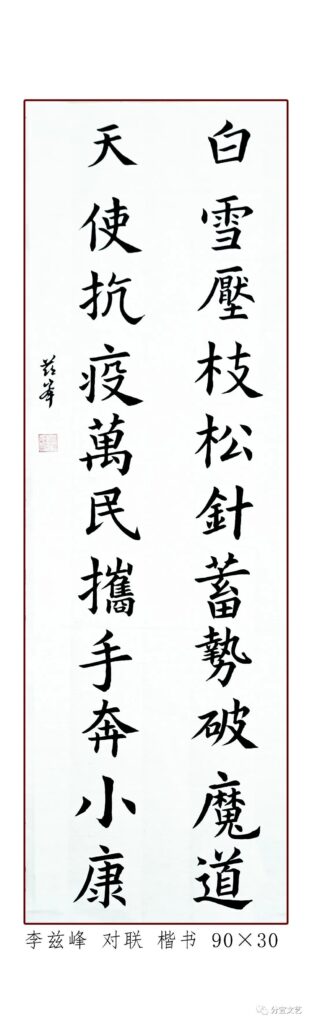 白雪壓枝松針蓄勢破魔道
天使抗疫萬民攜手奔小康
兹峯
李兹峰 对联 楷书 90×30
分宜文艺